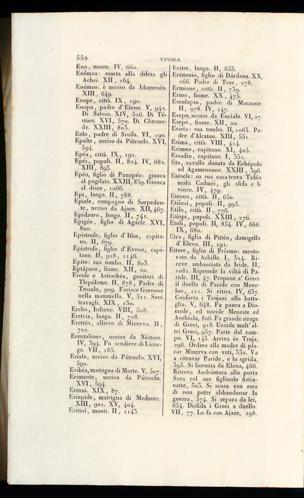 552
TAVOLA
Eno, monte. IV, 660.
Enómao: esorta alla difesa gli
Achei. XII, 164.
Enómao: è ucciso da Idomenéo.
XIII, 649.
Enope, città. IX, 190.
Enopo, padre d'Eleno. V, 942.
Di Satnio. XIV, 526. Di Téstore. XVI, 570. Di Clitomede. XXIII, 803.
Eolo, padre di Sisifo. VI, 190.
Epalte, ucciso da Pátroclo. XVI,
594.
Epéa, città. IX, 192.
Epéi, popoli. II, 814. IV, 682.
XIII, 893.
Epéo, figlio di Panopéo: giuoca
al pugilato. XXIII, 839. Giuoca
al disco, 1066.
Epi, luogo. II, 788.
Epicle, compagno di Sarpedonte, ucciso da Ajace. XII, 467.
Epidauro, luogo. II, 741.
Epigéo, figlio di Agacle. XVI,
800.
Epistrofo, figlio d'Ifito, capitano. II, 679.
Epistrofo, figlio d'Eveno, capitano. II, 928, 1146.
Epito: sua tomba. II, 803.
Eptáporo, fiume. XII, 20.
Ercole e Astiochéa, genitori di
Tlepólemo. II, 878. Padre di
Tessalo, 909. Ferisce Giunone
nella mammella. V, 511. Suoi
travagli. XIX, 130.
Erebo, Inferno. VIII, 508.
Eretria, luogo. II, 708.
Erettéo, allievo di Minerva. II,
720.
Ereutalione, ucciso da Néstore.
IV, 394. Fu scudiere di Licurgo. VII, 185.
Erialo, ucciso da Pátroclo. XVI,
590.
Eribéa, matrigna di Marte. V, 507.
Erimante, ucciso da Pátroclo.
XVI, 594.
Erinni. XIX, 87.
Eriopide, matrigna di Medonte.
XIII, 901. XV, 404.
Eritini, monti. II, 1143.
Eritre, luogo. II, 653.
Erittonio, figlio di Dárdano. XX,
266. Padre di Troe, 278.
Ermione, città. II, 739.
Ermo, fiume. XX, 475.
Esculapio, padre di Macaone.
II, 978. IV, 247.
Esepo, ucciso da Eurialo. VI, 27.
Esepo, fiume. XII, 20.
Esieta: sua tomba. II, 1063. Padre d'Alcatoo. XIII, 551.
Esima, città. VIII, 414.
Esimno, capitano. XI, 405.
Essadio, capitano. I, 351.
Eta, cavalla donata da Echépolo
ad Agamennone. XXIII, 396.
Etéocle: in sua casa trova Tidéo
molti Cadmei, gli sfida e li
vince. IV, 479.
Eteono, città. II, 650.
Etiéi, popoli. II, 995.
Etilo, città. II, 775.
Etiopi, popoli. XXIII, 276.
Etoli, popoli. II, 854. IV, 668.
IX, 680.
Etra, figlia di Pittéo, damigella
d'Elena. III, 191.
Ettore, figlio di Priamo: mentovato da Achille. I, 324. Riceve ambasciata da Iride. II,
1081. Riprende la viltà di Paride. III, 47. Propone a' Greci
il duello di Paride con Menelao, 111. Si ritira. IV, 637.
Conforta i Trojani alla battaglia. V, 648. Fa paura a Diomede, ed uccide Meneste ed
Anchialo, 806. Fa grande strage
di Greci, 918. Uccide molt'altri Greci, 937. Parte dal campo. VI, 145. Arriva in Troja,
296. Ordina alla madre di placar Minerva con voti, 335. Va
a ritrovar Paride, e lo sgrida,
395. Si licenzia da Elena, 466.
Ritrova Andrómaca alla porta
Scea col suo figliuolo Astianatte, 503. Si scusa con essa
di non poter abbandonar la
guerra, 574. Si separa da lei,
654. Disfida i Greci a duello.
VII, 77. Lo fa con Ajace, 298.